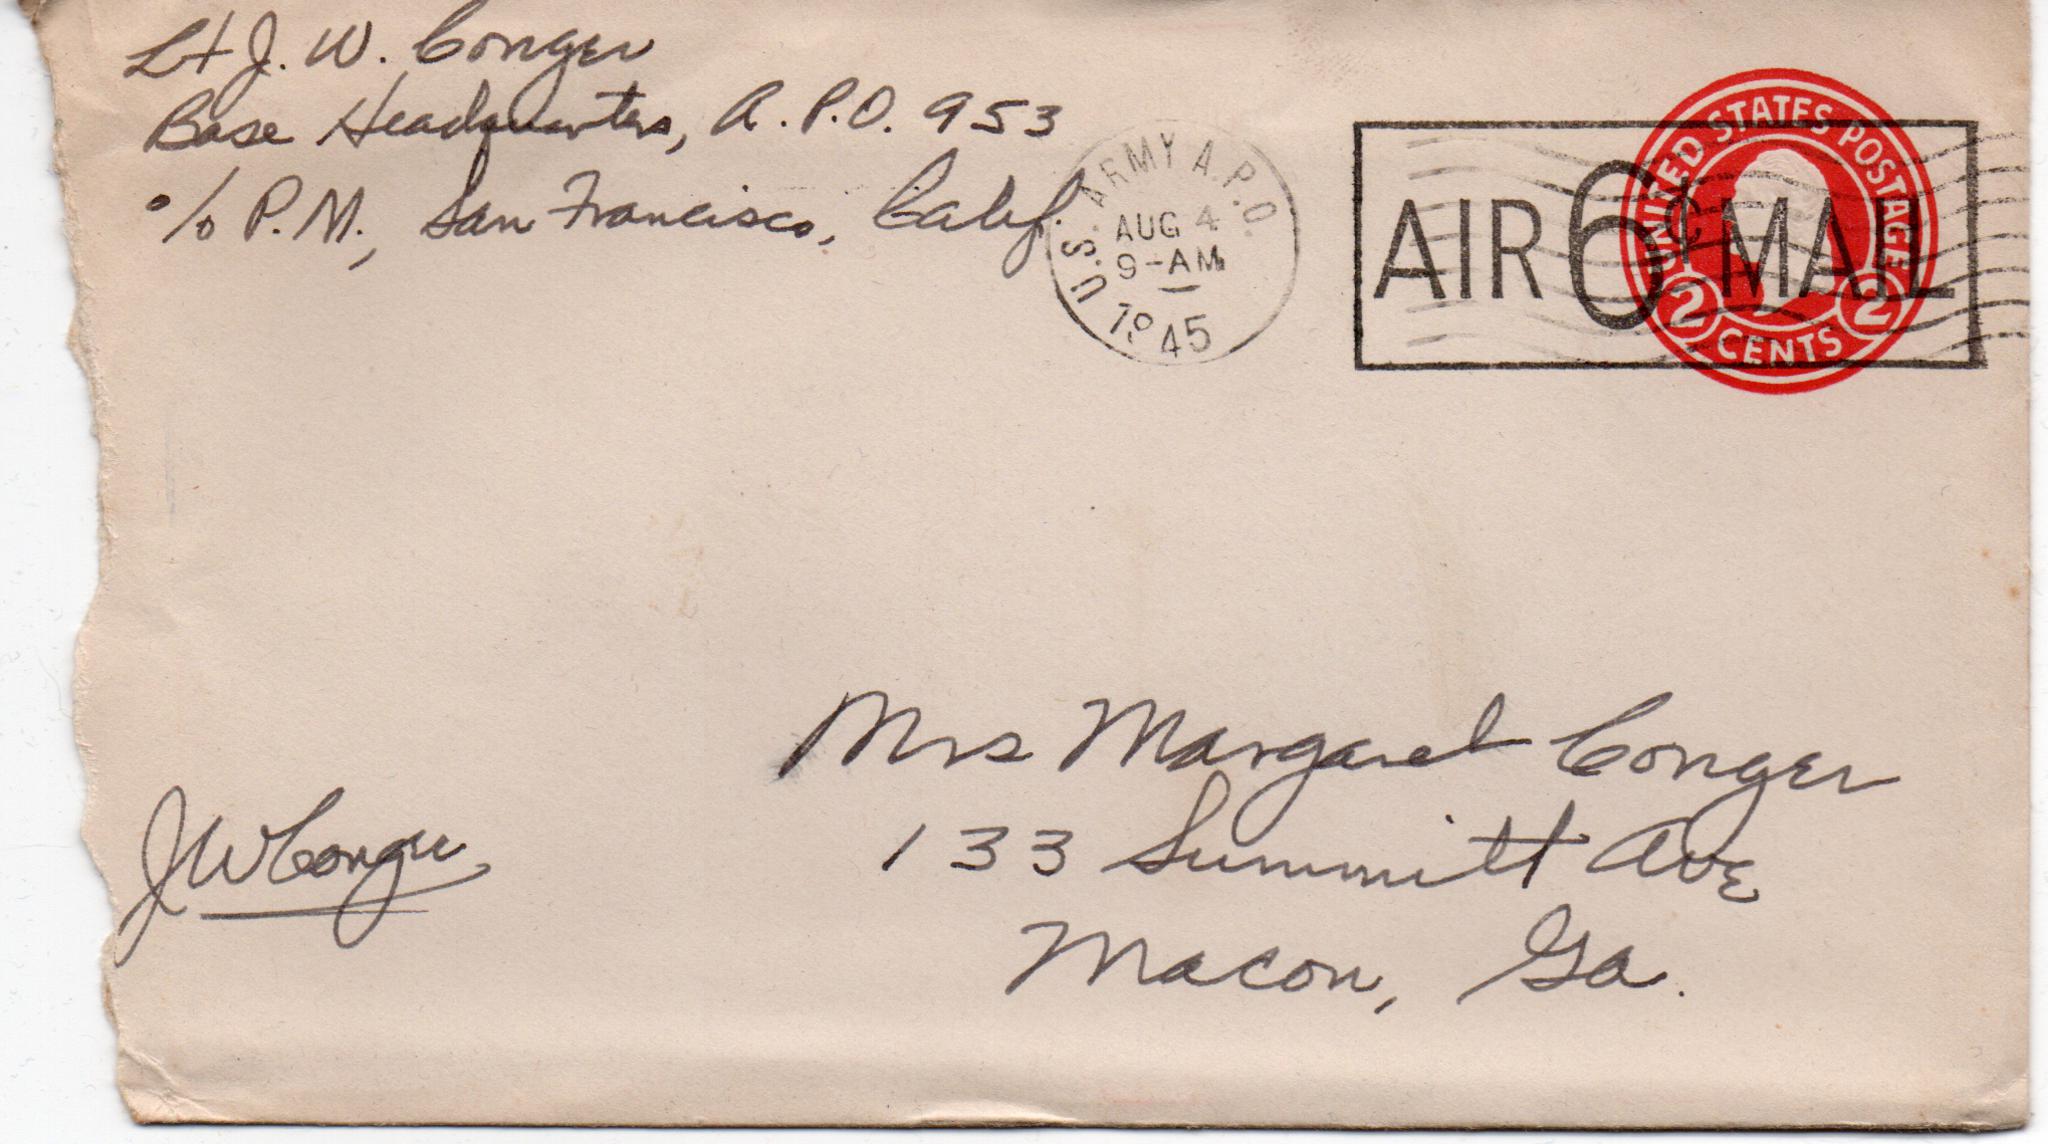 Lt J. W. Conger
Base Headquarters, A.P.O. 953
c/o P.M., San Francisco, Calif.
U.S. ARMY A.P.O.
AUG 4
9-AM
1945
AIR 6¢ MAIL
UNITED STATES POSTAGE
2 CENTS 2
Mrs Margaret Conger
133 Summitt Ave
Macon, Ga.
JWConger